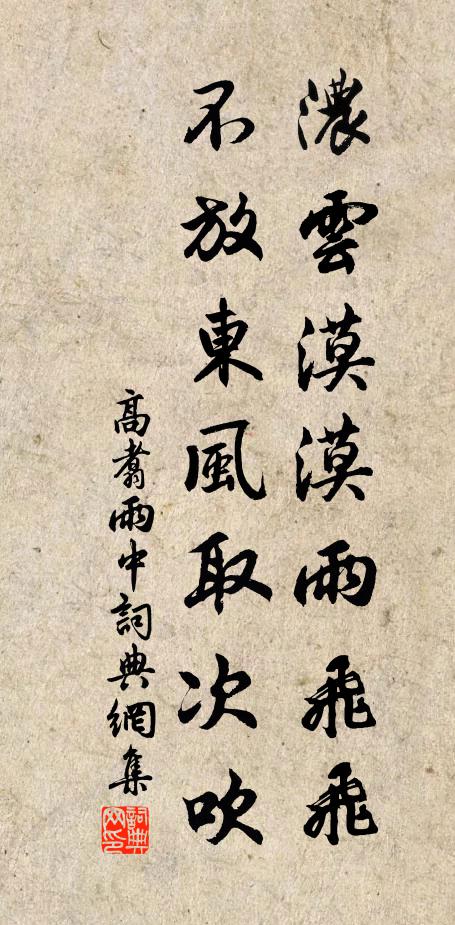 濃雲漠漠雨飛飛
不放東風取次吹
高翥雨中詞典網集
詞典
网印